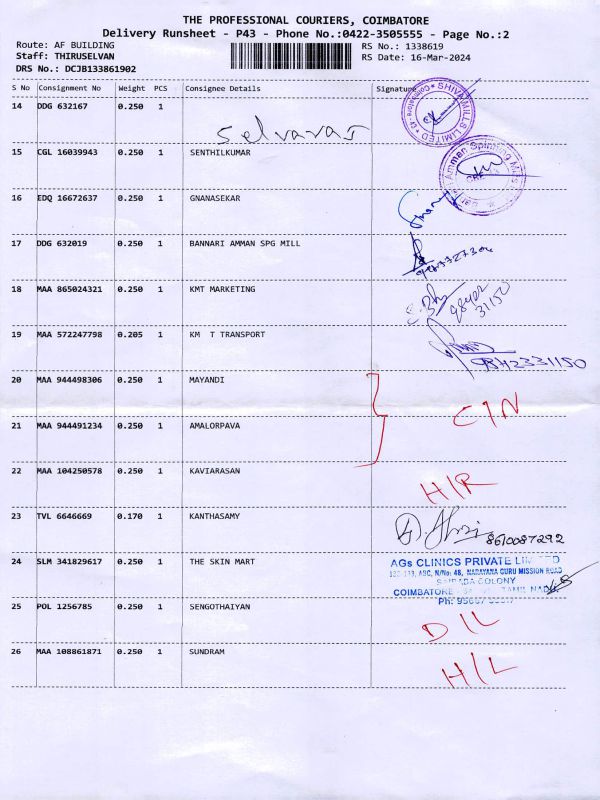 THE PROFESSIONAL COURIERS, COIMBATORE
Delivery Runsheet - P43 - Phone No.:0422-3505555 - Page No.:2
Route: AF BUILDING
RS No.: 1338619
Staff: THIRUSELVAN
RS Date: 16-Mar-2024
DRS No.: DCJB133861902
S No Consignment No Weight PCS Consignee Details Signature
14 DDG 632167 0.250 1
Selvaraj
SHIVA MILLS LIMITED
15 CGL 16039943 0.250 1 SENTHILKUMAR
16 EDQ 16672637 0.250 1 GNANASEKAR
17 DDG 632019 0.250 1 BANNARI AMMAN SPG MILL
18 MAA 865024321 0.250 1 KMT MARKETING
31150
19 MAA 572247798 0.205 1 KM T TRANSPORT
9842331150
20 MAA 944498306 0.250 1 MAYANDI
CIN
21 MAA 944491234 0.250 1 AMALORPAVA
22 MAA 104250578 0.250 1 KAVIARASAN
H/R
23 TVL 6646669 0.170 1 KANTHASAMY
8610087292
24 SLM 341829617 0.250 1 THE SKIN MART
AGs CLINICS PRIVATE LIMITED
ABC, N/No: 48, NARAYANA GURU MISSION ROAD
SAIBABA COLONY
COIMBATORE TAMIL NADU
25 POL 1256785 0.250 1 SENGOTHAIYAN
D/L
26 MAA 108861871 0.250 1 SUNDRAM
H/L